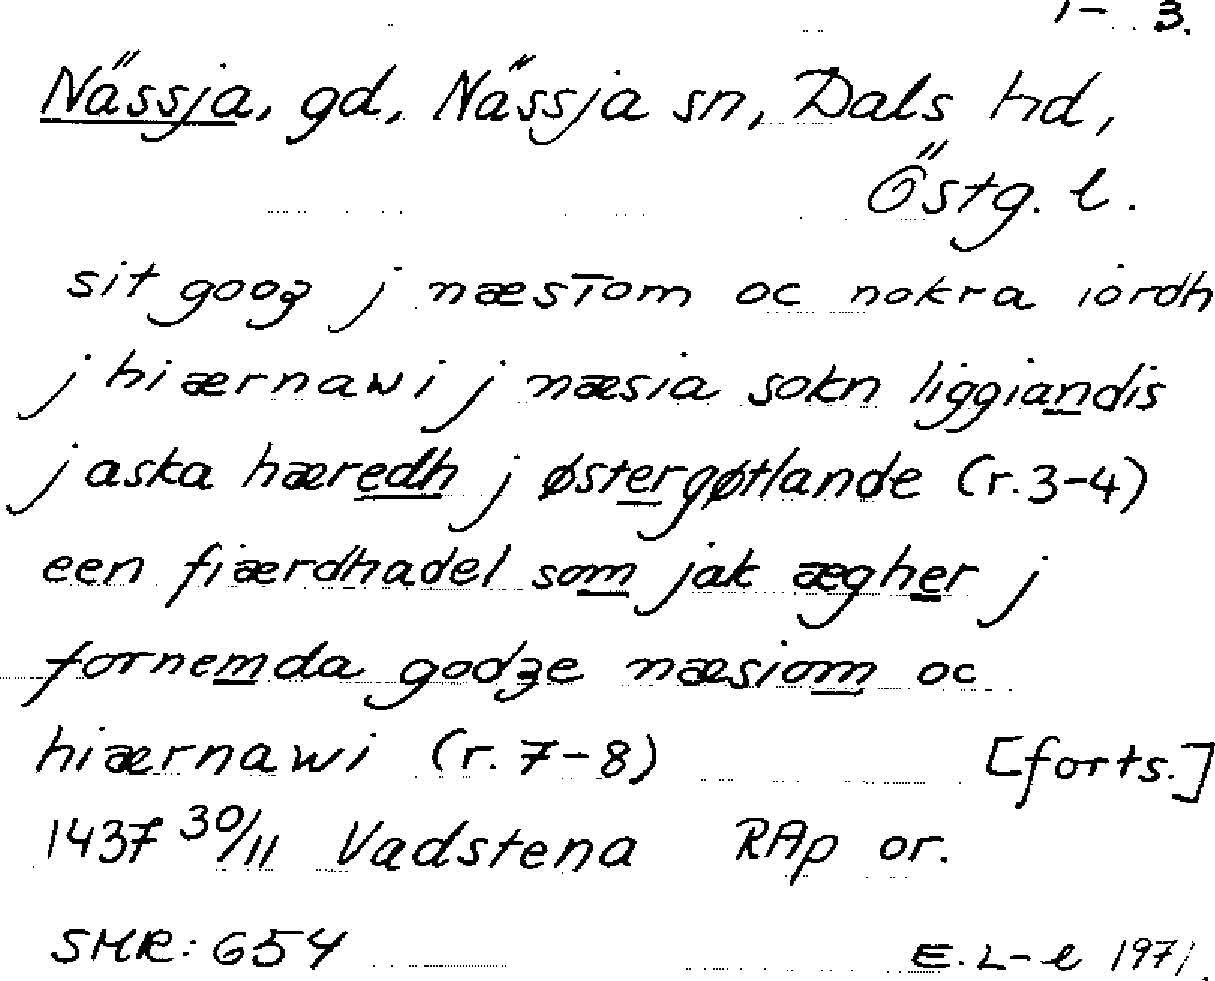 1- 3.
Nässja, gd, Nässja sn, Dals hd,
Östg. l.
sit gooz j næsiom oc nokra iordh
j hiærnawi j næsia sokn liggiandis
j aska hæredh j østergøtlande (r.3-4)
een fiærdhadel som jak ægher j
fornemda godze næsiom oc
hiærnawi (r. 7-8) [forts.]
1437 30/11 Vadstena RAp or.
SMR: 654 E. L-l 1971.